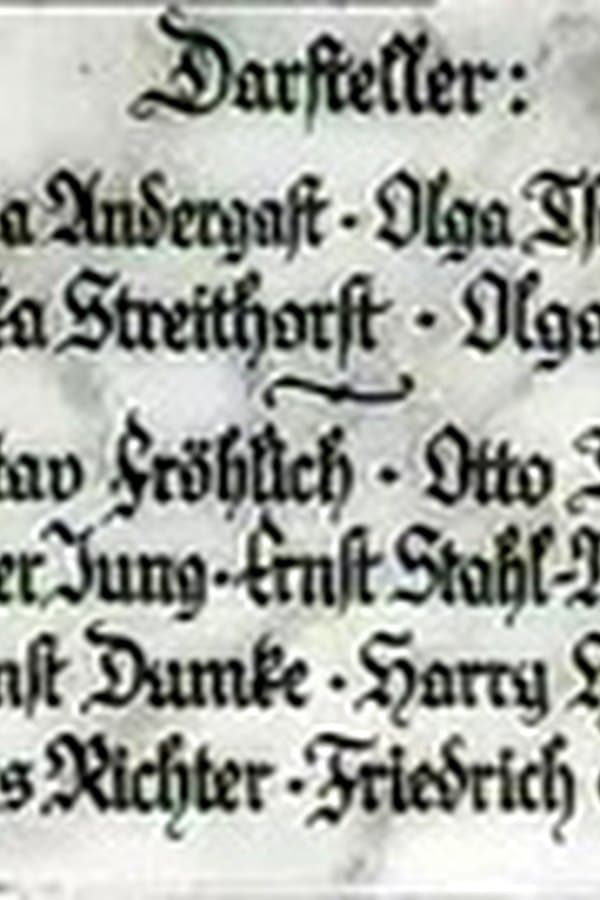 Darsteller:
a Andergast · Olga Ts
ka Streithorst · Olga
tav Fröhlich · Otto
er Jung · Ernst Stahl-N
nst Dumke · Harry
s Richter · Friedrich